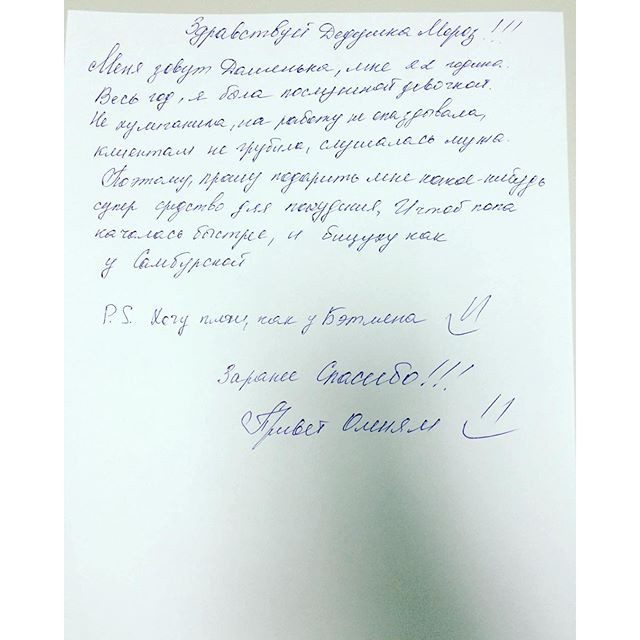 Здравствуй Дедушка Мороз!!!
Меня зовут Дашенька, мне 22 година.
Весь год, я была послушной девочкой.
Не хулиганила, на работу не опаздывала,
клиентам не грубила, слушалась мужа.
Поэтому, прошу подарить мне какое-нибудь
супер средство для похудения, И чтоб попа
качалась быстрее, и бицуху как
у Самбурской
P.S. Хочу плащ, как у Бэтмена
Заранее Спасибо!!!
Привет Оленям